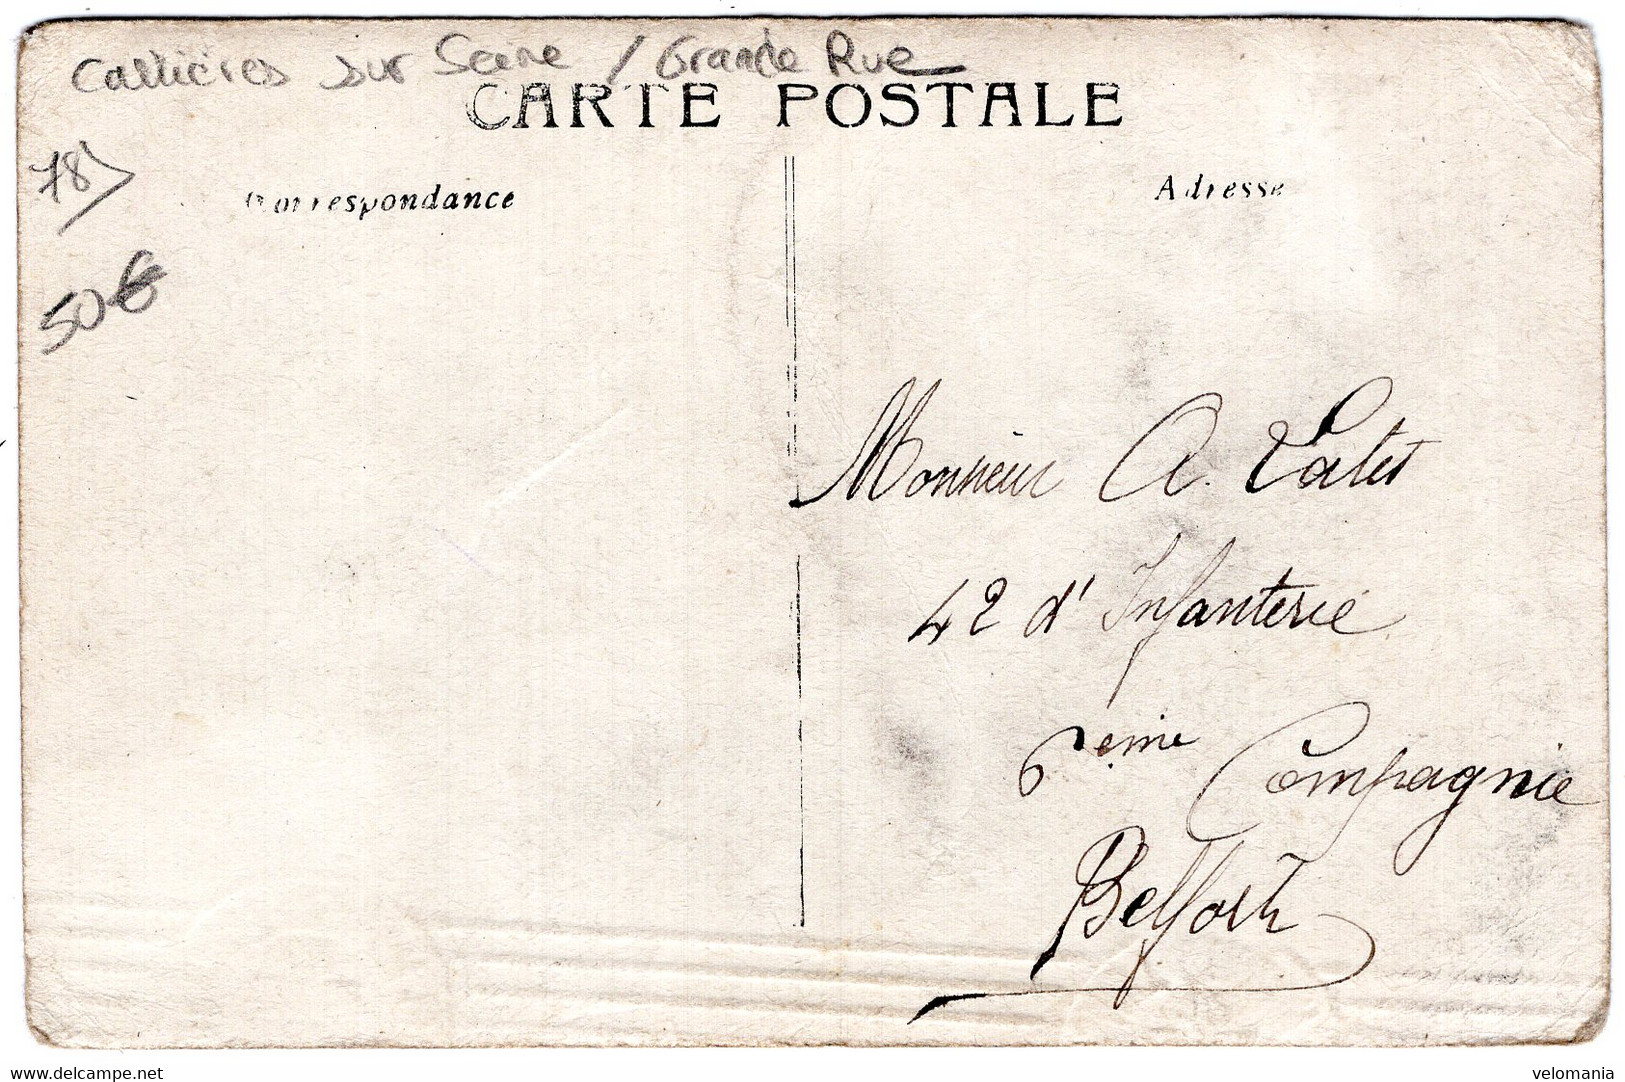 Carrières sur Seine / Grande Rue
CARTE POSTALE
78
Correspondance
Adresse
50€
Monsieur A.
42 d'Infanterie
6eme Compagnie
Belfort
www.delcampe.net
velomania